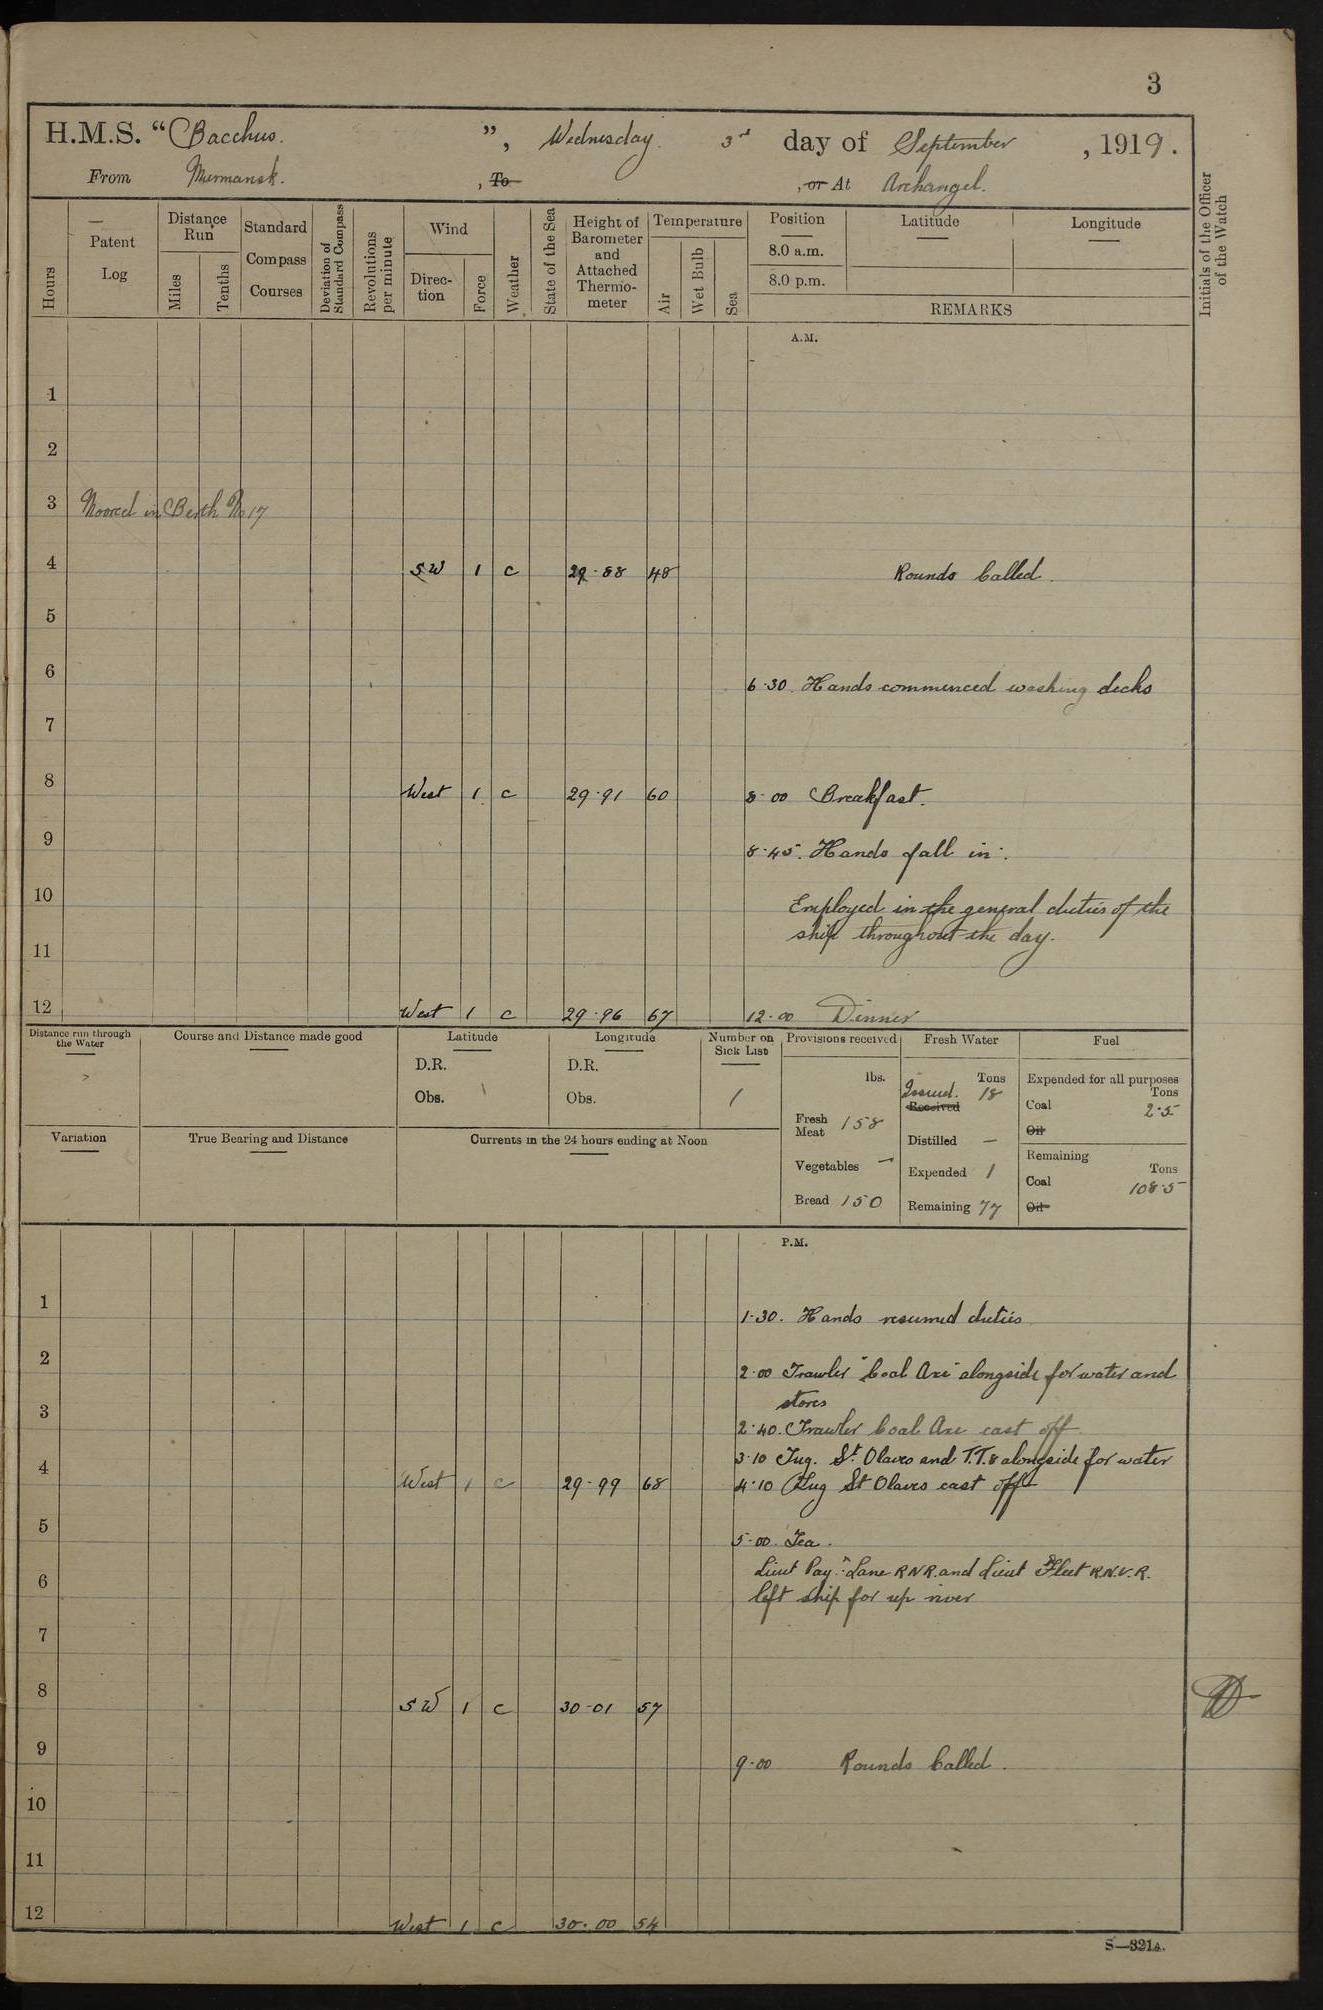 3
H.M.S. "Bacchus.", Wednesday. 3rd day of September, 1919.
From Murmansk., To, or At Archangel.
Hours
Patent Log
Distance Run
Miles
Tenths
Standard Compass Courses
Deviation of Standard Compass
Revolutions per minute
Wind
Direction
Force
Weather
State of the Sea
Height of Barometer and Attached Thermometer
Temperature
Air
Wet Bulb
Sea
Position
8.0 a.m.
8.0 p.m.
Latitude
Longitude
REMARKS
Initials of the Officer of the Watch
A.M.
1
2
3 Moored in Berth No 17
4 SW 1 c 29.88 48 Rounds Called.
5
6
6.30. Hands commenced washing decks
7
8 West 1 c 29.91 60 8.00 Breakfast.
9 8.45. Hands fall in.
10 Employed in the general duties of the
11 ship throughout the day.
12 West 1 c 29.96 67 12.00 Dinner
Distance run through the Water
Course and Distance made good
Latitude
D.R.
Obs.
Longitude
D.R.
Obs.
Number on Sick List
1
Provisions received
lbs.
Fresh Meat 158
Vegetables —
Bread 150
Fresh Water
Tons
Issued. 18
Received
Distilled —
Expended 1
Remaining 77
Fuel
Expended for all purposes
Tons
Coal 2.5
Oil
Remaining
Tons
Coal 108.5
Oil
Variation
True Bearing and Distance
Currents in the 24 hours ending at Noon
P.M.
1 1.30. Hands resumed duties
2 2.00 Trawler "Coal Axe" alongside for water and
stores
3 2.40. Trawler Coal Axe cast off
3.10 Tug. St. Olaves and T.T.8 alongside for water
4 West 1 c 29.99 68 4.10 Tug St Olaves cast off
5 5.00 Tea.
Lieut Pay.r Lane RNR. and Lieut Fleet R.N.V.R.
6 left ship for up river
7
8 SW 1 c 30.01 57
9 9.00 Rounds Called.
10
11
12 West 1 c 30.00 54
S—321A.